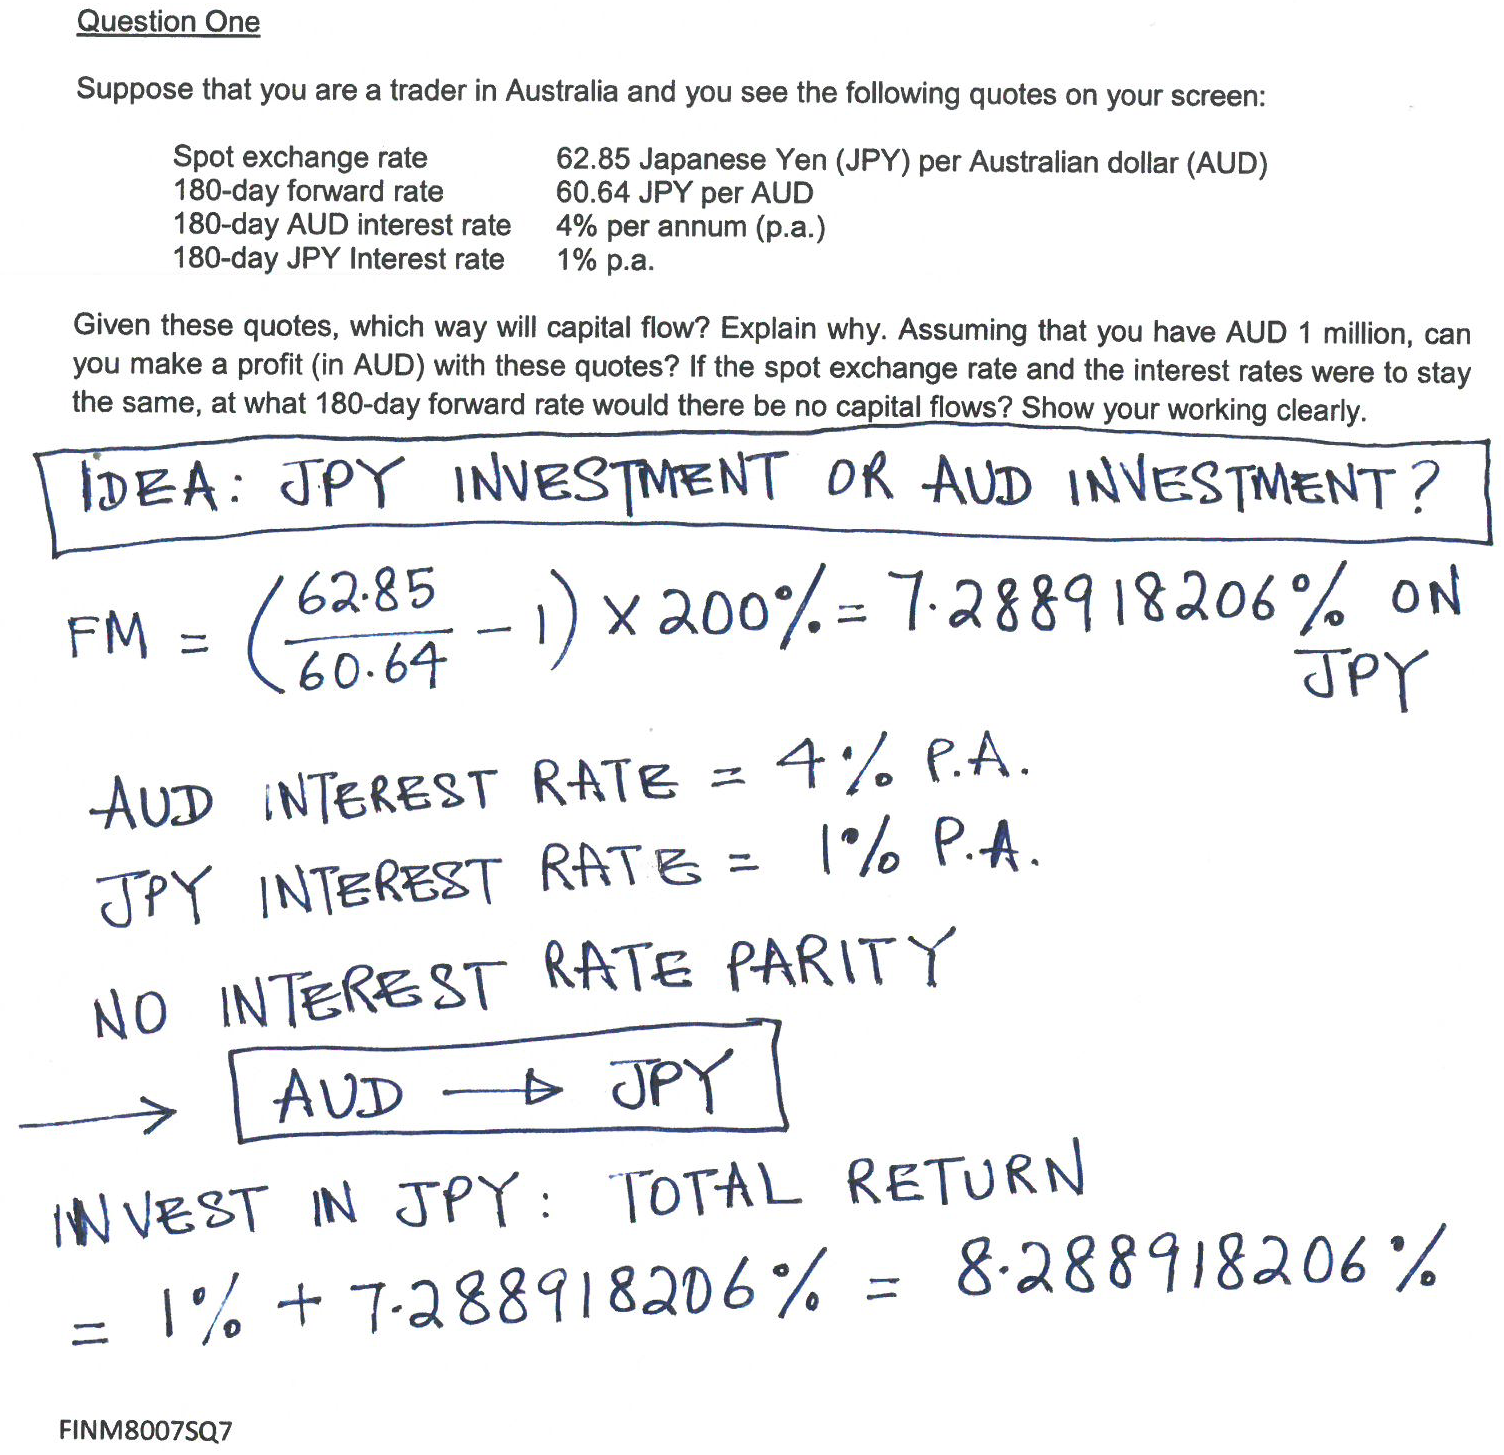 Question One
Suppose that you are a trader in Australia and you see the following quotes on your screen:
Spot exchange rate 62.85 Japanese Yen (JPY) per Australian dollar (AUD)
180-day forward rate 60.64 JPY per AUD
180-day AUD interest rate 4% per annum (p.a.)
180-day JPY Interest rate 1% p.a.
Given these quotes, which way will capital flow? Explain why. Assuming that you have AUD 1 million, can
you make a profit (in AUD) with these quotes? If the spot exchange rate and the interest rates were to stay
the same, at what 180-day forward rate would there be no capital flows? Show your working clearly.
IDEA: JPY INVESTMENT OR AUD INVESTMENT?
FM = (62.85/60.64 - 1) x 200% = 7.288918206% ON
JPY
AUD INTEREST RATE = 4% P.A.
JPY INTEREST RATE = 1% P.A.
NO INTEREST RATE PARITY
→ AUD → JPY
INVEST IN JPY: TOTAL RETURN
= 1% + 7.288918206% = 8.288918206%
FINM8007SQ7